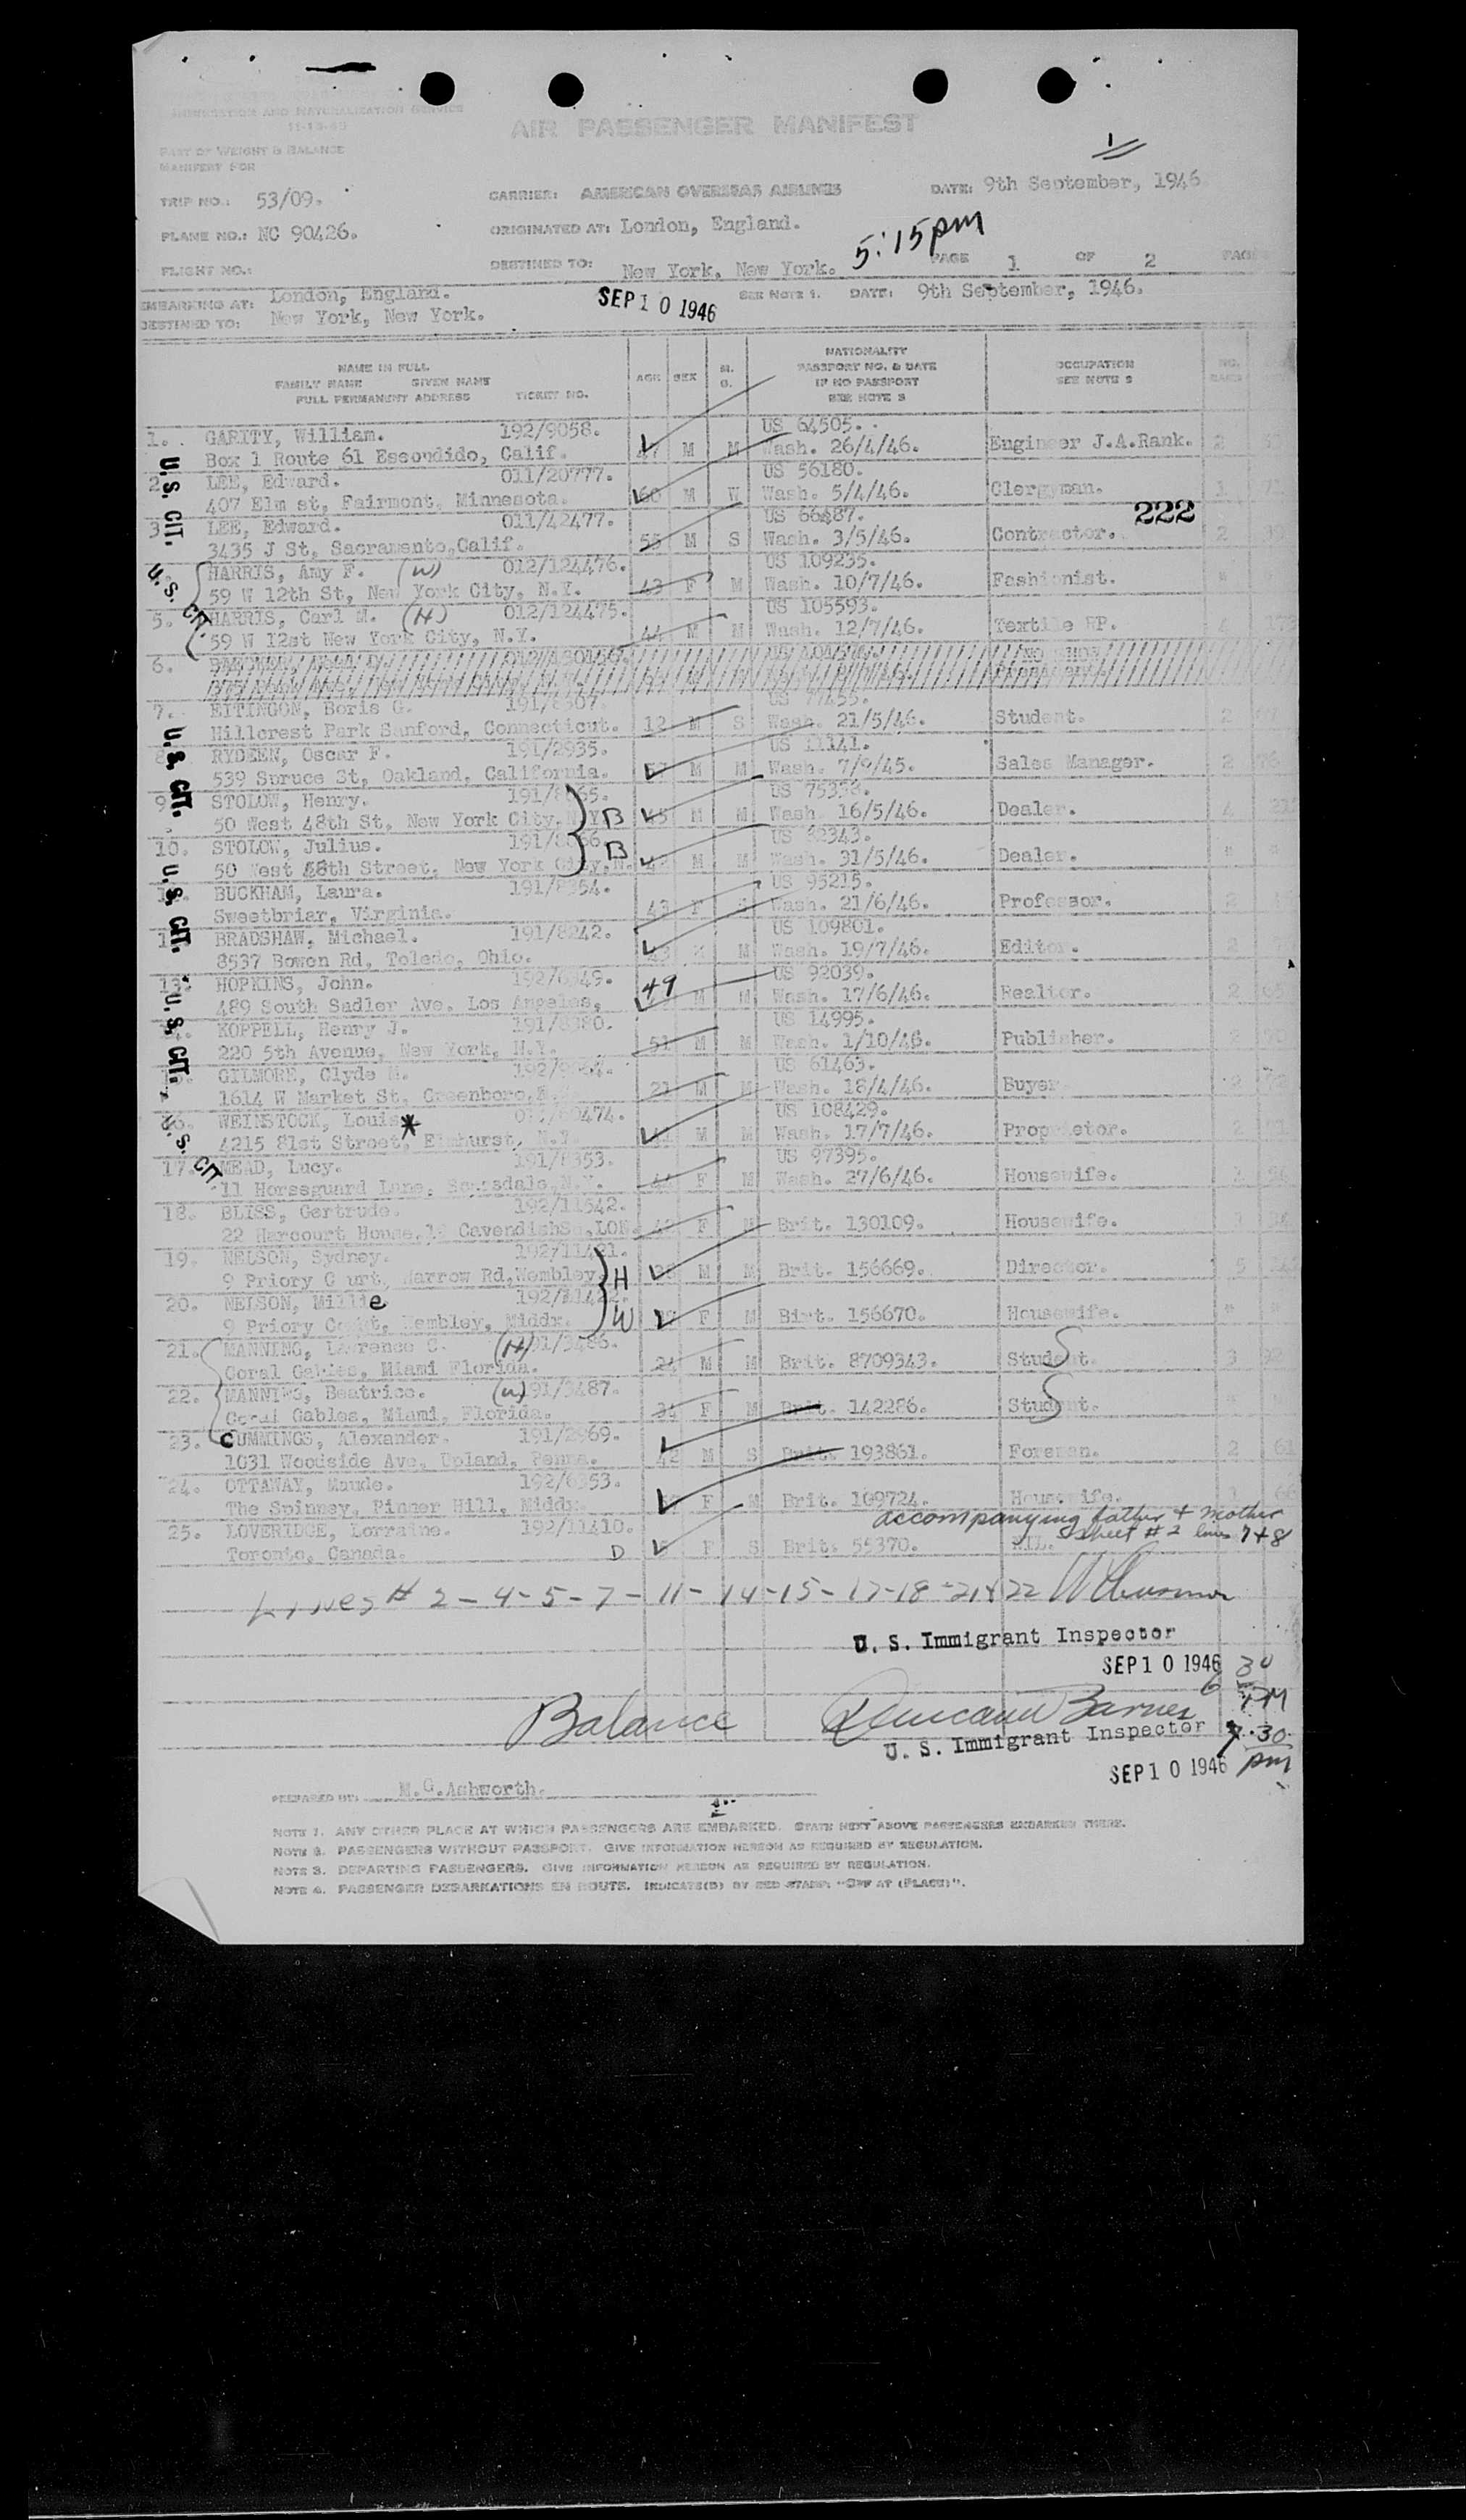 IMMIGRATION AND NATURALIZATION SERVICE
AIR PASSENGER MANIFEST
PART OF WEIGHT & BALANCE
MANIFEST FOR
TRIP NO.: 53/09. CARRIER: AMERICAN OVERSEAS AIRLINES DATE: 9th September, 1946
PLANE NO.: NC 90426. ORIGINATED AT: London, England.
5:15pm
FLIGHT NO.: DESTINED TO: New York, New York. PAGE 1 OF 2 PAGES
EMBARKING AT: London, England. SEP 10 1946 SEE NOTE 1. DATE: 9th September, 1946.
DESTINED TO: New York, New York.
NAME IN FULL
FAMILY NAME GIVEN NAME
FULL PERMANENT ADDRESS TICKET NO. AGE SEX M. NATIONALITY
PASSPORT NO. & DATE
IF NO PASSPORT
SEE NOTE 2 OCCUPATION
SEE NOTE 2 NO.
1. GARITY, William. 192/9058. US 64505.
Box 1 Route 61 Escondido, Calif. 47 M M Wash. 26/4/46. Engineer J.A.Rank. 2
2. LEE, Edward. 011/20777. US 56180.
407 Elm st, Fairmont, Minnesota. 60 M W Wash. 5/4/46. Clergyman. 1
222
3. LEE, Edward. 011/42477. US 66487.
3435 J St, Sacramento,Calif. 55 M S Wash. 3/5/46. Contractor. 2
HARRIS, Amy F. (W) 012/124476. US 109235.
59 W 12th St, New York City, N.Y. 43 F M Wash. 10/7/46. Fashionist. "
5. HARRIS, Carl M. (H) 012/124475. US 105593.
59 W 12st New York City, N.Y. 44 M M Wash. 12/7/46. Textile RP. 4
6. NO SHOW
7. EITINGON, Boris G. 191/8307. US 77455.
Hillcrest Park Sanford, Connecticut. 12 M S Wash. 21/5/46. Student. 2
8. RYDEEN, Oscar F. 191/2935. US 11141.
539 Spruce St, Oakland, California. 57 M M Wash. 7/9/45. Sales Manager. 2
9. STOLOW, Henry. US
50 West 48th St, New York City, N.Y. B 45 M M Wash. 16/5/46. Dealer. 4
10. STOLOW, Julius. US 82343.
50 West 48th Street, New York City,N. B M M Wash. 31/5/46. Dealer. " "
11. BUCKHAM, Laura. 191/8354. US 95215.
Sweetbriar, Virginia. 43 F S Wash. 21/6/46. Professor. 2
12. BRADSHAW, Michael. 191/8242. US 109801.
8537 Bowen Rd, Toledo, Ohio. 43 M M Wash. 19/7/46. Editor. 2
13. HOPKINS, John. US 92039.
489 South Sadler Ave, Los Angeles, 49 M M Wash. 17/6/46. Realtor. 2
KOPPELL, Henry J. 191/8380. US 14995.
220 5th Avenue, New York, N.Y. 51 M M Wash. 1/10/46. Publisher. 2
GILMORE, Clyde M. US 61463.
1614 W Market St, Greenboro, 21 M M Wash. 18/4/46. Buyer 2
WEINSTOCK, Louis* US 108429.
4215 81st Street, Elmhurst, N.Y. M M Wash. 17/7/46. Proprietor. 2
17. MEAD, Lucy. 191/8353. US 97395.
11 Horseguard Lane, Scarsdale,N.Y. F M Wash. 27/6/46. Housewife.
18. BLISS, Gertrude. 192/11542.
22 Harcourt House,19 CavendishSq,LON. F M Brit. 130109. Housewife.
19. NELSON, Sydney. 192/11421.
9 Priory Court, Harrow Rd,Wembley. H M M Brit. 156669. Director. 5
20. NELSON, Millie 192/11422.
9 Priory Court, Wembley, Middx. W F M Birt. 156670. Housewife. " "
21. MANNING, Lawrence C. (H) 191/3486.
Coral Gables, Miami Florida. M M Brit. 8709343. Student. 3
22. MANNING, Beatrice. (W) 191/3487.
Coral Gables, Miami, Florida. F M Brit. 142286. Student.
23. CUMMINGS, Alexander. 191/2969.
1031 Woodside Ave, Upland, Penna. 42 M S Brit. 193861. Foreman. 2 61
24. OTTAWAY, Maude. 192/6353.
The Spinney, Pinner Hill, Middx. F M Brit. 109724. Housewife. 1 66
accompanying father & mother
sheet #2 lines 7+8
25. LOVERIDGE, Lorraine. 192/11410.
Toronto, Canada. D F S Brit. 55370. NIL.
U.S. CIT.
U.S. CIT.
U.S. CIT.
U.S. CIT.
U.S. CIT.
U.S. CIT.
Lines # 2-4-5-7-11-14-15-17-18-21+22
U. S. Immigrant Inspector
SEP 10 1946 6 30 PM
Balance Duncan Barnes
U. S. Immigrant Inspector 7.30
SEP 10 1946 pm
PREPARED BY: M.G.Ashworth.
NOTE 1. ANY OTHER PLACE AT WHICH PASSENGERS ARE EMBARKED. STATE NEXT ABOVE PASSENGERS EMBARKED THERE.
NOTE 2. PASSENGERS WITHOUT PASSPORT. GIVE INFORMATION HEREON AS REQUIRED BY REGULATION.
NOTE 3. DEPARTING PASSENGERS. GIVE INFORMATION HEREON AS REQUIRED BY REGULATION.
NOTE 4. PASSENGER DEBARKATIONS EN ROUTE. INDICATE(D) BY RED STAMP "OFF AT (PLACE)".